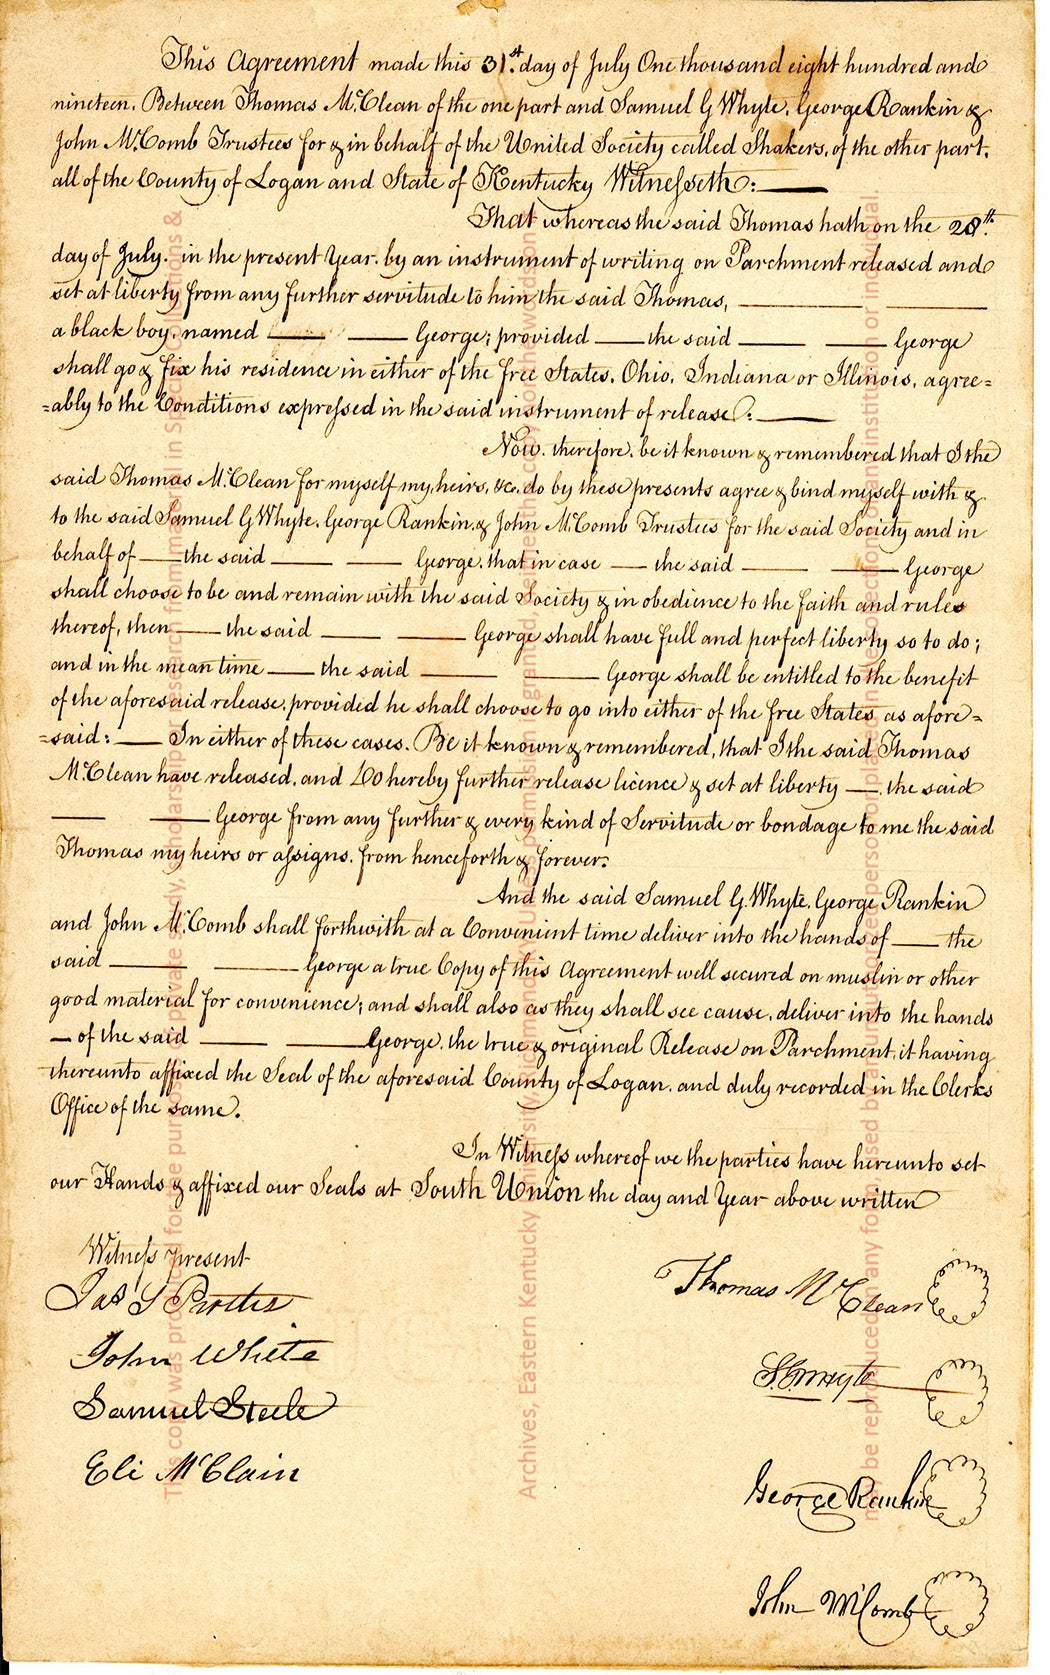 This Agreement made this 31.st day of July One thousand eight hundred and
nineteen. Between Thomas McClean of the one part and Samuel G Whyte, George Rankin &
John McComb Trustees for & in behalf of the United Society called Shakers, of the other part.
all of the County of Logan and State of Kentucky Witnesseth:——
That whereas the said Thomas hath on the 28th.
day of July. in the present Year. by an instrument of writing on Parchment released and
set at liberty from any further servitude to him the said Thomas, —— ——
a black boy, named —— —— George; provided —— the said —— —— George
shall go & fix his residence in either of the free States, Ohio, Indiana or Illinois, agree=
=ably to the Conditions expressed in the said instrument of release:——
Now, therefore, be it known & remembered that I the
said Thomas McClean for myself my, heirs, &c, do by these presents agree & bind myself with &
to the said Samuel G Whyte, George Rankin, & John McComb Trustees for the said Society and in
behalf of —— the said —— —— George, that in case —— the said —— —— George
shall choose to be and remain with the said Society & in obedience to the faith and rules
thereof, then —— the said —— —— George shall have full and perfect liberty so to do;
and in the mean time —— the said —— —— George shall be entitled to the benefit
of the aforesaid release, provided he shall choose to go into either of the free States as afore=
=said: —— In either of these cases. Be it known & remembered, that I the said Thomas
McClean have released, and Do hereby further release licence & set at liberty ——, the said
—— —— George from any further & every kind of Servitude or bondage to me the said
Thomas my heirs or assigns, from henceforth & forever.
And the said Samuel G. Whyte, George Rankin
and John McComb shall forthwith at a Convenient time deliver into the hands of —— the
said —— —— George a true Copy of this Agreement well secured on muslin or other
good material for convenience; and shall also as they shall see cause, deliver into the hands
— of the said —— —— George, the true & original Release on Parchment, it having
thereunto affixed the Seal of the aforesaid County of Logan, and duly recorded in the Clerks
Office of the same.
In Witness whereof we the parties have hereunto set
our Hands & affixed our Seals at South Union the day and Year above written
Witness present
John White
Samuel Steele
Eli McClain
Thomas McClean
S G Whyte
George Rankin
John McComb